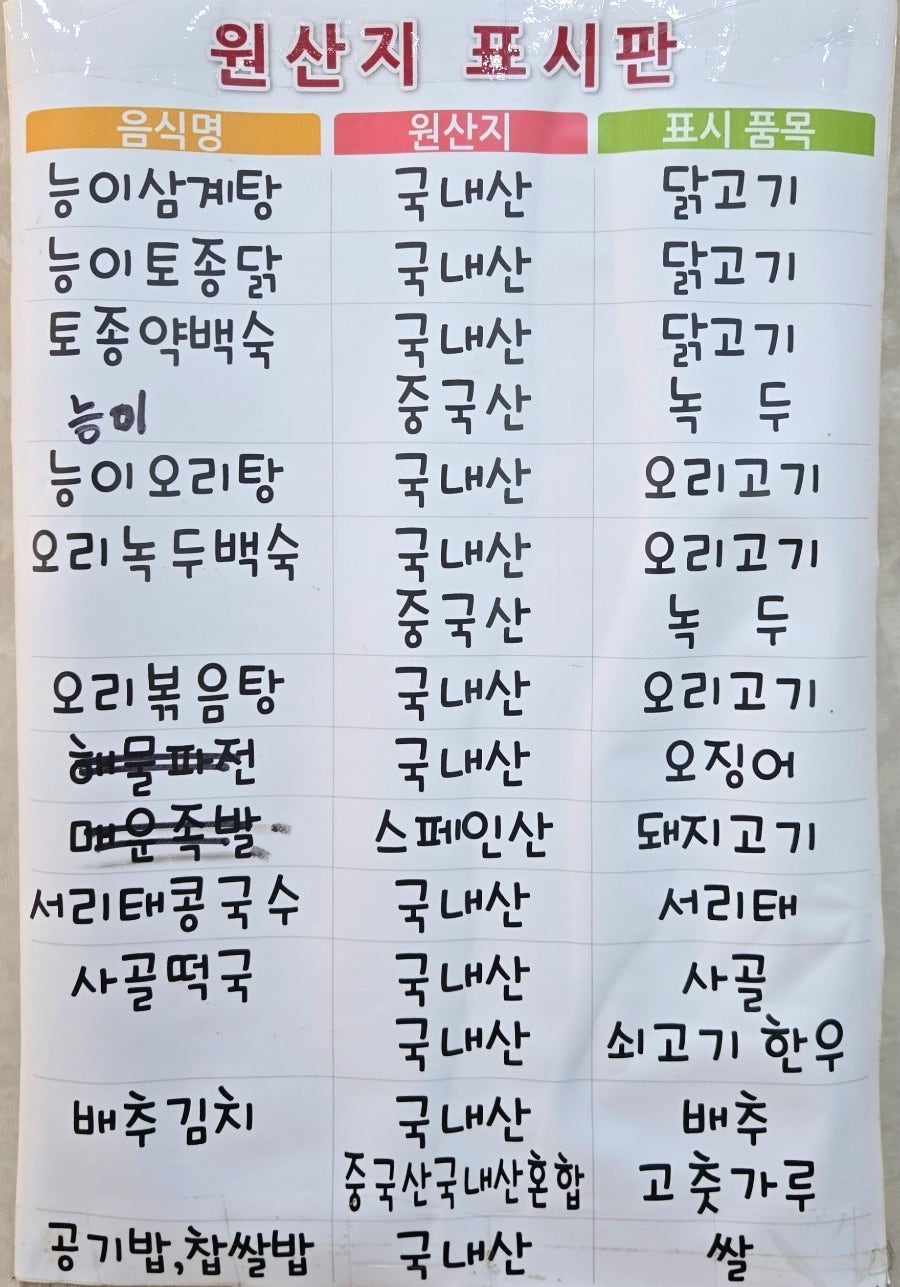 원산지 표시판
음식명 원산지 표시 품목
능이삼계탕 국내산 닭고기
능이토종닭 국내산 닭고기
토종약백숙 국내산 닭고기
능이 중국산 녹두
능이오리탕 국내산 오리고기
오리녹두백숙 국내산 오리고기
중국산 녹두
오리볶음탕 국내산 오리고기
해물파전 국내산 오징어
매운족발 스페인산 돼지고기
서리태콩국수 국내산 서리태
사골떡국 국내산 사골
국내산 쇠고기 한우
배추김치 국내산 배추
중국산국내산혼합 고춧가루
공기밥,찹쌀밥 국내산 쌀